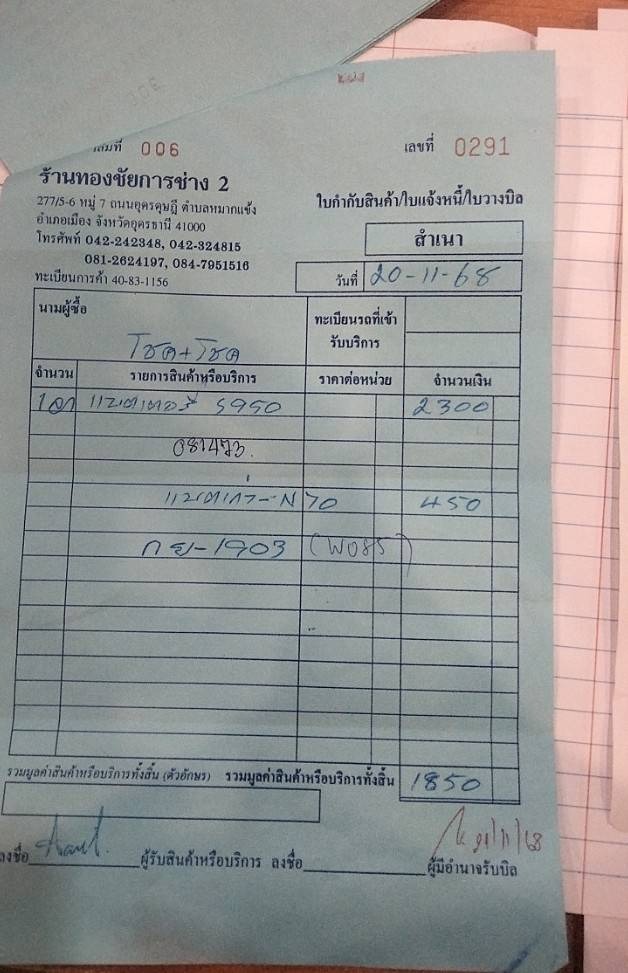 เล่มที่ 006
เลขที่ 0291
ร้านทองชัยการช่าง 2
277/5-6 หมู่ 7 ถนนอุดรดุษฎี ตำบลหมากแข้ง
อำเภอเมือง จังหวัดอุดรธานี 41000
โทรศัพท์ 042-242348, 042-324815
081-2624197, 084-7951516
ทะเบียนการค้า 40-83-1156
ใบกำกับสินค้า/ใบแจ้งหนี้/ใบวางบิล
สำเนา
วันที่ 20-11-68
นามผู้ซื้อ
โชค+โชค
ทะเบียนรถที่เข้า
รับบริการ
จำนวน รายการสินค้าหรือบริการ ราคาต่อหน่วย จำนวนเงิน
1 ลูก แบตเตอรี่ S950 2300
081473.
แบตเก่า-N70 450
กย-1903 (W085)
รวมมูลค่าสินค้าหรือบริการทั้งสิ้น (ตัวอักษร) รวมมูลค่าสินค้าหรือบริการทั้งสิ้น 1850
ลงชื่อ ผู้รับสินค้าหรือบริการ ลงชื่อ ผู้มีอำนาจรับบิล